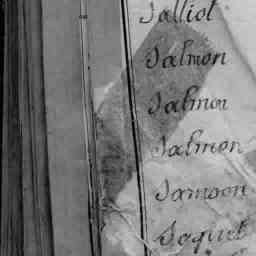 Salliot
Salmon
Salmon
Salmon
Samson
Saquet